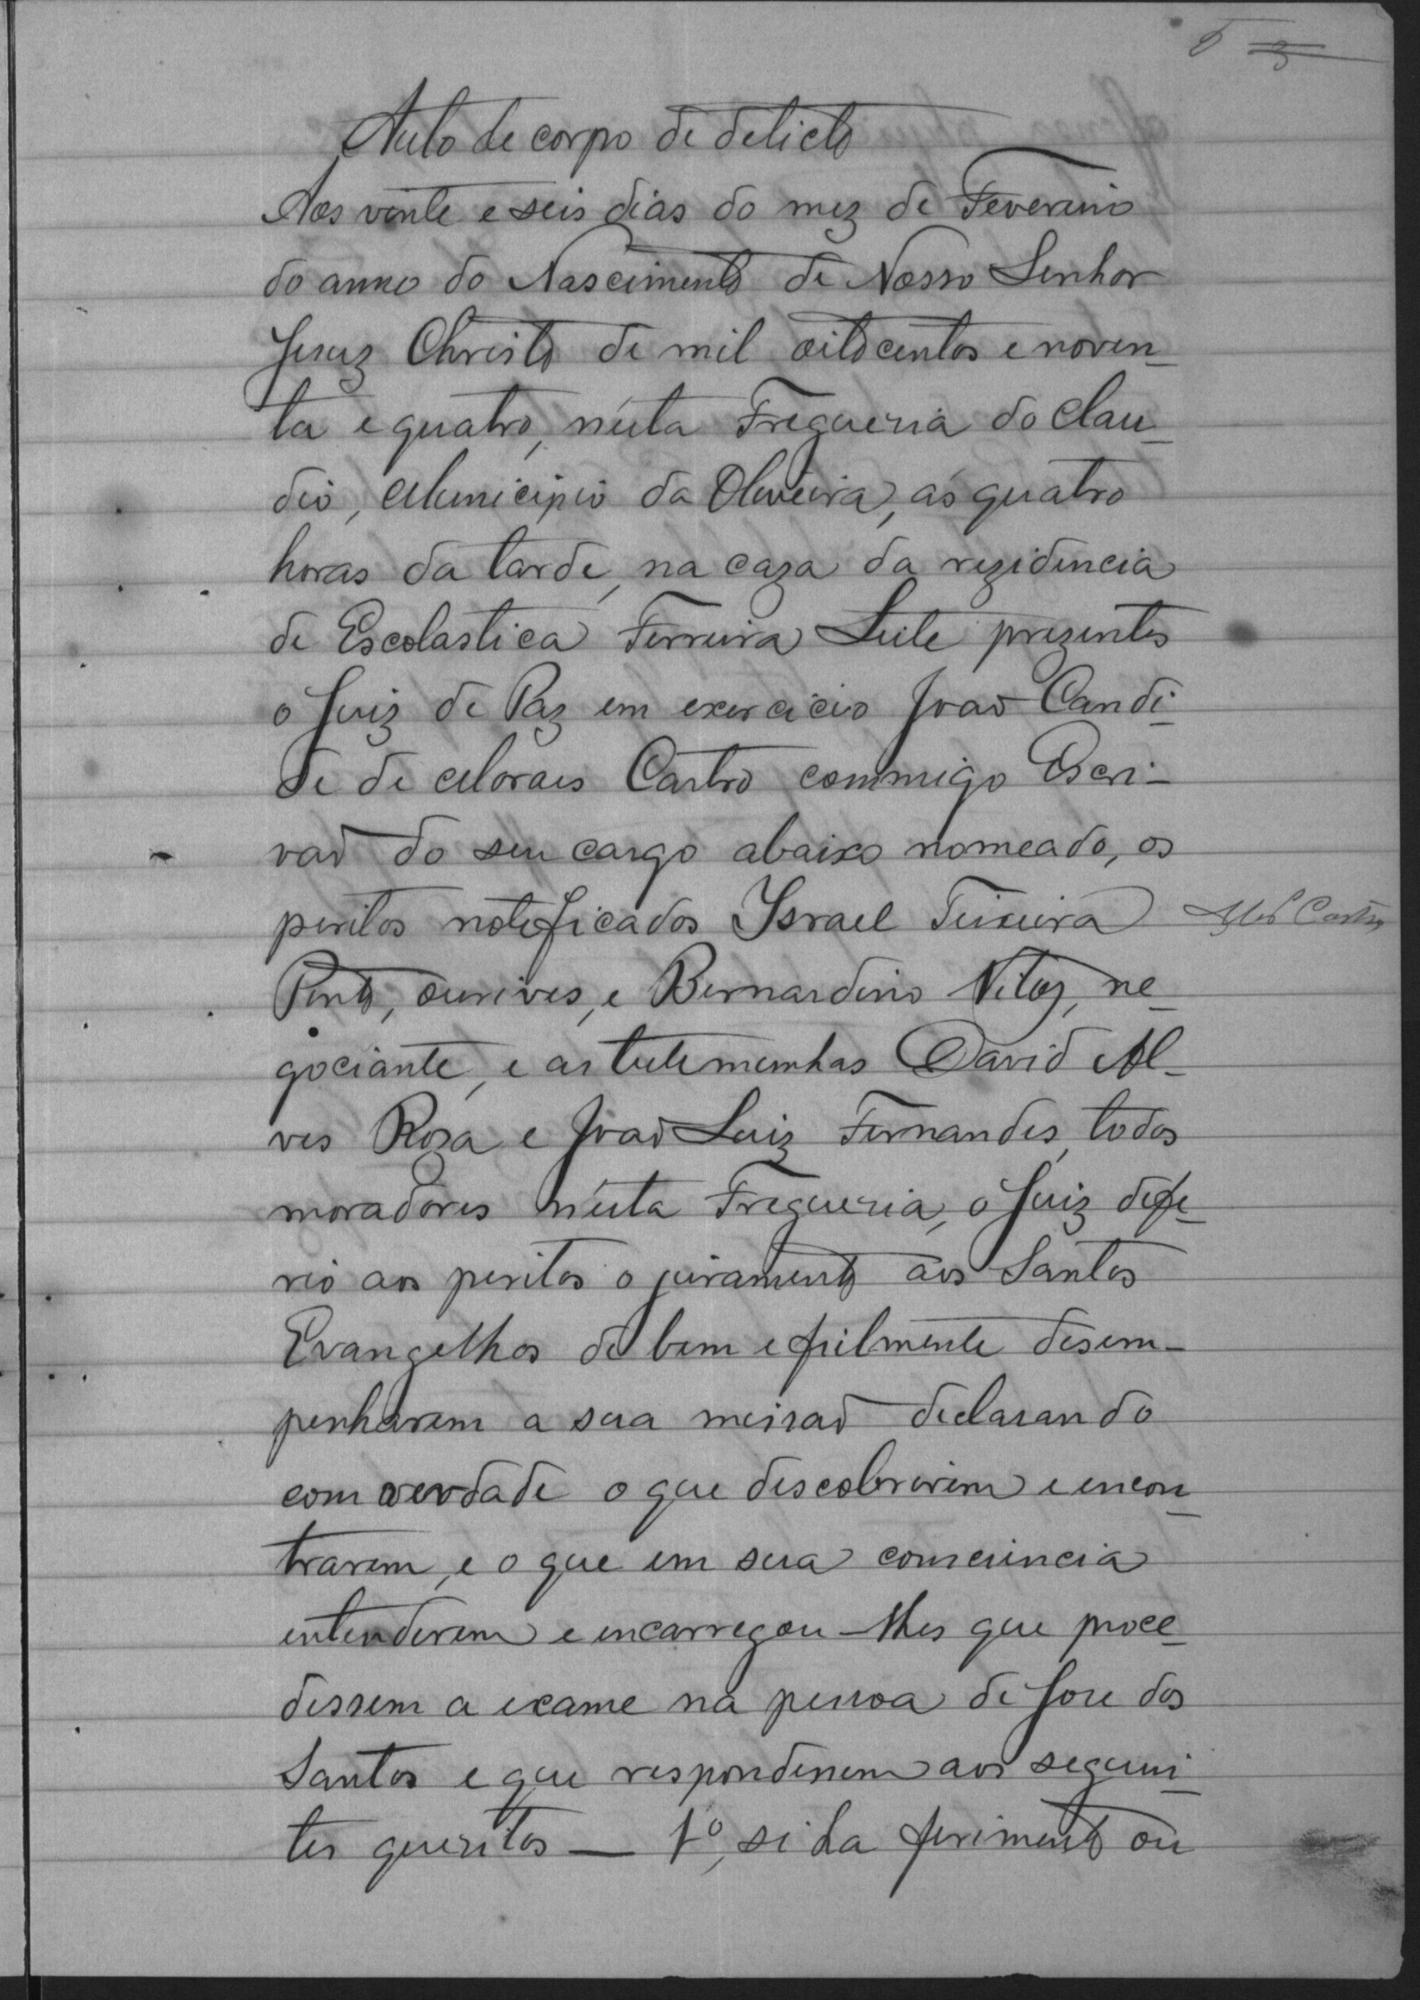 Auto de corpo de delicto
Aos vinte e seis dias do mez de Fevereiro
do anno do Nascimento de Nosso Senhor
Jesuz Christo de mil oitocentos e noven_
ta e quatro, nésta Freguezia do Clau_
dio, Municipio da Oliveira, as quatro
horas da tarde, na caza da rezidencia
de Escolastica Ferreira Leite prezentes
o Juiz de Paz em exercicio João Candi_
de de Moraes Castro commigo Escri_
vaõ do seu cargo abaixo nomeado, os
peritos noteficados Ysrael Teixeira
Pinto, ourives, e Bernardino Vitoz, ne_
gociante, e as testemunhas David Al_
ves Roza e Joaõ Luiz Fernandes, todos
moradores nésta Freguezia, o Juiz defe_
rio aos peritos o juramento aos Santos
Evangelhos de bem e fielmente desem_
penharem a sua missaõ declarando
com verdade o que descobrirem e encon_
trarem, e o que em sua consciencia
entenderem e encarregou-lhes que proce_
dessem a exame na pessoa de Jose dos
Santos e que respondessem aos seguin_
tes quezitos — 1º, si ha ferimento ou